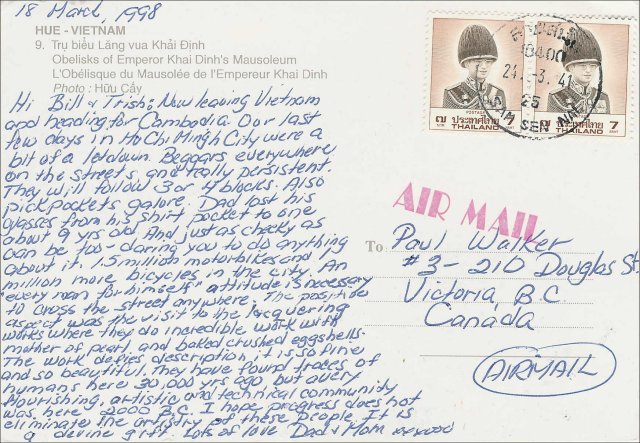 18 March, 1998
HUE - VIETNAM
9. Trụ biểu Lăng vua Khải Định
Obelisks of Emperor Khai Dinh's Mausoleum
L'Obélisque du Mausolée de l'Empereur Khai Dinh
Photo : Hữu Cấy
Hi Bill & Trish: Now leaving Vietnam
and heading for Cambodia. Our last
few days in Ho Chi Mingh City were a
bit of a letdown. Beggars everywhere
on the streets, and really persistent.
They will follow 3 or 4 blocks. Also
pickpockets galore. Dad lost his
glasses from his shirt pocket to one
about 9 yrs old And just as cheeky as
can be too - daring you to do anything
about it. 1.5 million motorbikes and
million more bicycles in the city. An
"every man for himself" attitude is necessary
to cross the street anywhere. The positive
aspect was the visit to the lacquering
works where they do incredible work with
mother of pearl, and baked crushed eggshells.
The work defies description, it is so fine
and so beautiful. They have found traces of
humans here 30,000 yrs ago, but a very
flourishing, artistic and technical community
was here 2000 B.C. I hope progress does not
eliminate the artistry for these people. It is
a devine gift. Lots of love Dad & Mom xxoxoo
10400
24. -3. 41
25
SAM SEN NAI
๗ บาท ประเทศไทย
POSTAGE
THAILAND 7 BAHT
ประเทศไทย
THAILAND 7 BAHT
AIR MAIL
To
Paul Walker
#3-210 Douglas St
Victoria, B.C.
Canada
AIRMAIL